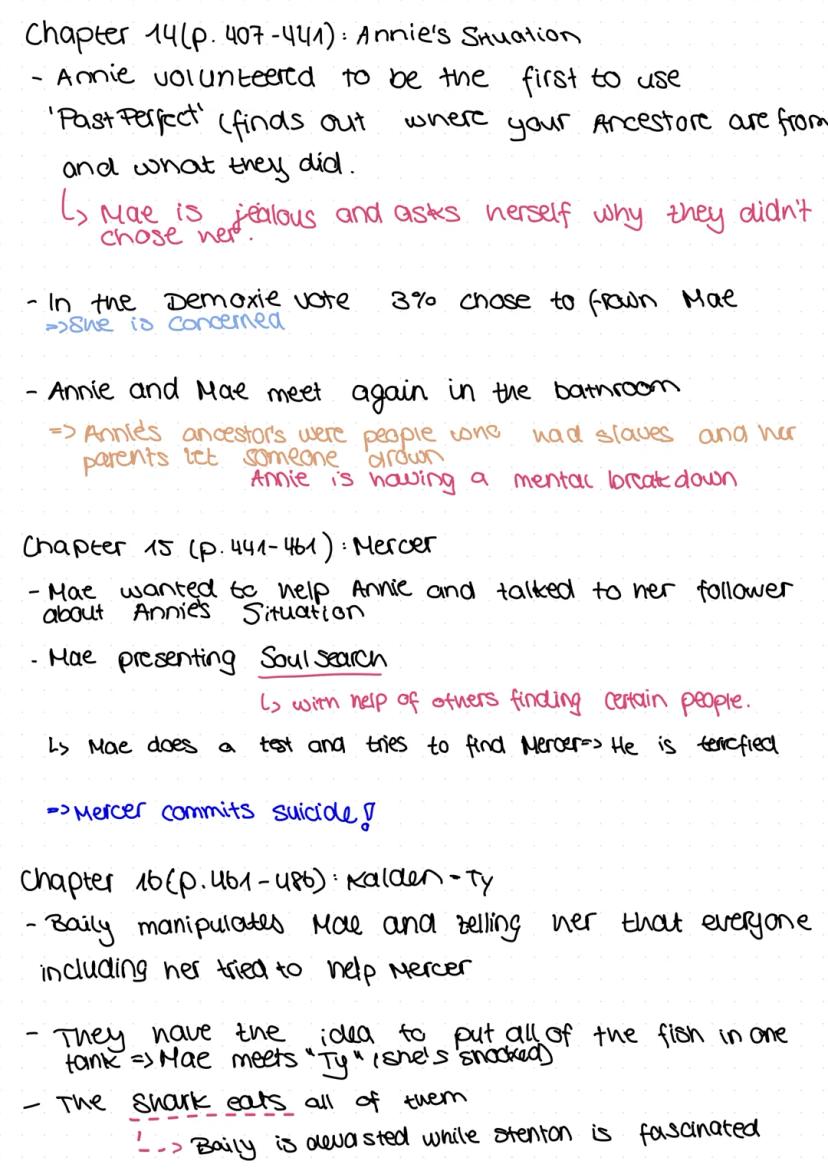 Chapter 14(p. 407-441): Annie's Situation
- Annie volunteered to be the first to use
'Past Perfect' (finds out where your Ancestore are from
and what they did.
↳ Mae is jealous and asks herself why they didn't
chose her.
- In the Demoxie vote 3% chose to frown Mae
=>She is concerned
- Annie and Mae meet again in the bathroom
=> Annie's ancestors were people who had slaves and her
parents let someone drown
Annie is having a mental breakdown
Chapter 15 (p. 441-461): Mercer
- Mae wanted to help Annie and talked to her follower
about Annie's Situation
- Mae presenting Soul search
↳ with help of others finding certain people.
↳ Mae does a test and tries to find Mercer=> He is tericfied
=> Mercer commits suicide!
Chapter 16(p.461-486): Kalden-Ty
- Baily manipulates Mae and telling her that everyone
including her tried to help Mercer
- They have the idea to put all of the fish in one
tank => Mae meets "Ty" (she's shocked)
- The shark eats all of them
--> Baily is devasted while stenton is fascinated